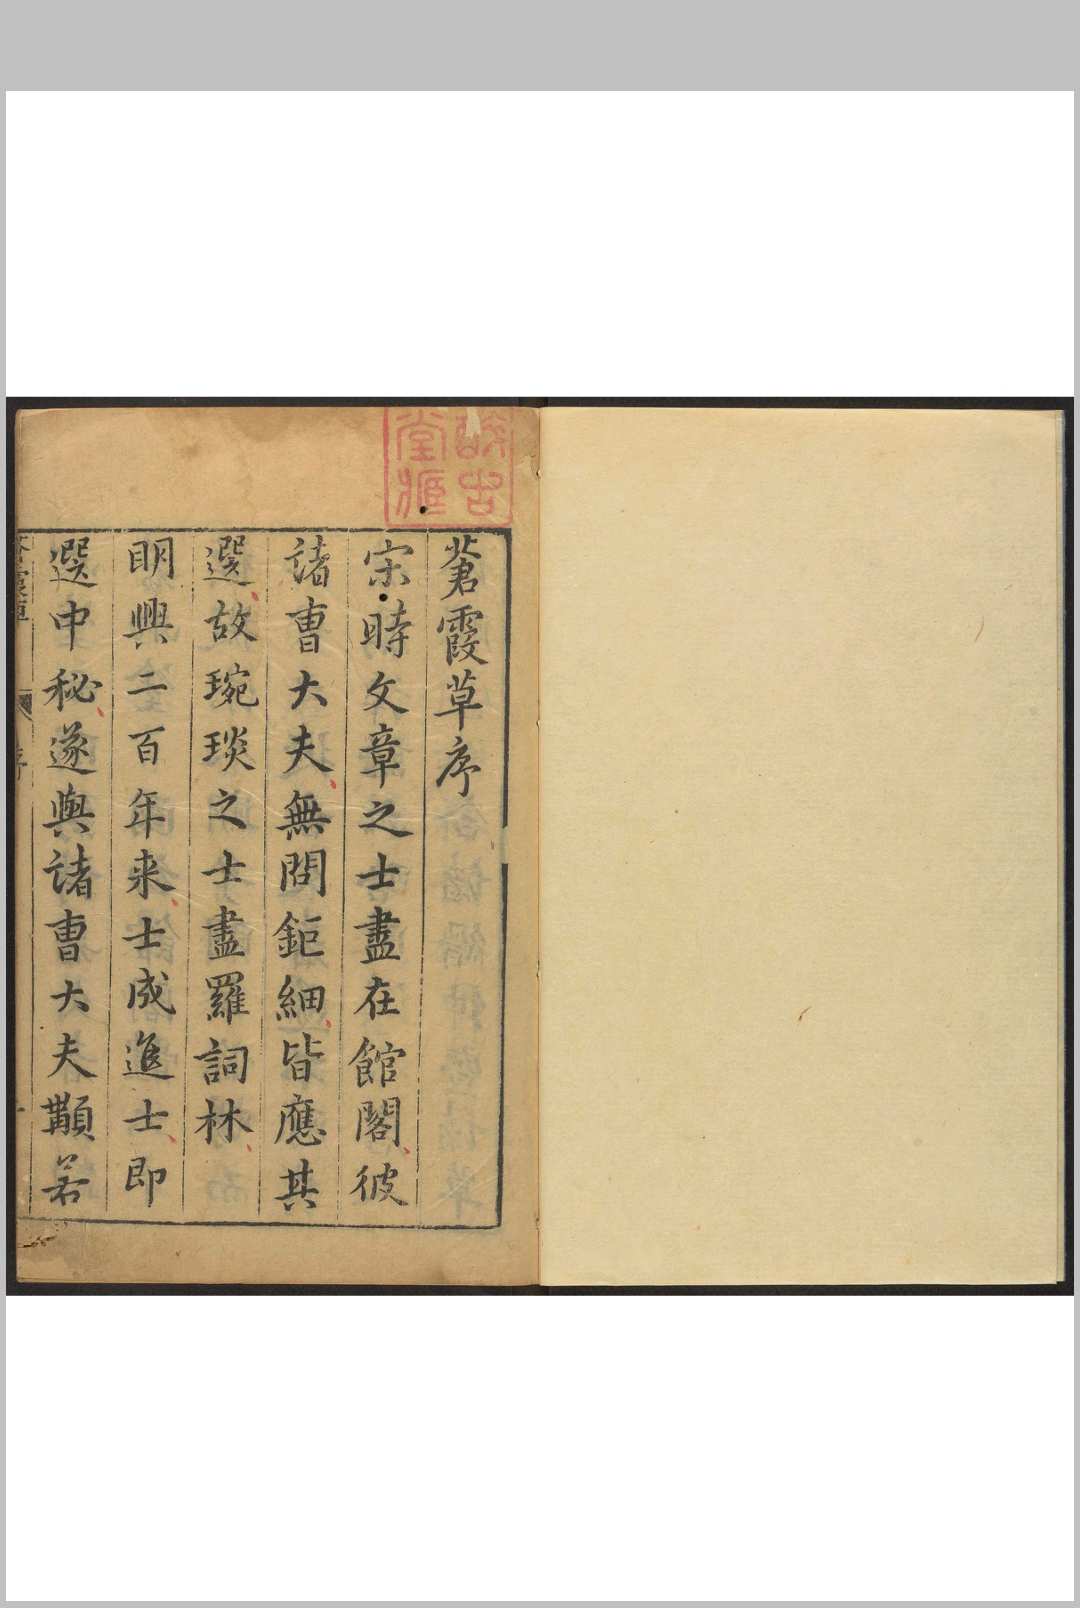 蒼霞草序
宋時文章之士盡在館閣彼
諸曹大夫無問鉅細皆應其
選故琬琰之士盡羅詞林
明興二百年来士成進士即
選中秘遂與諸曹大夫顯若